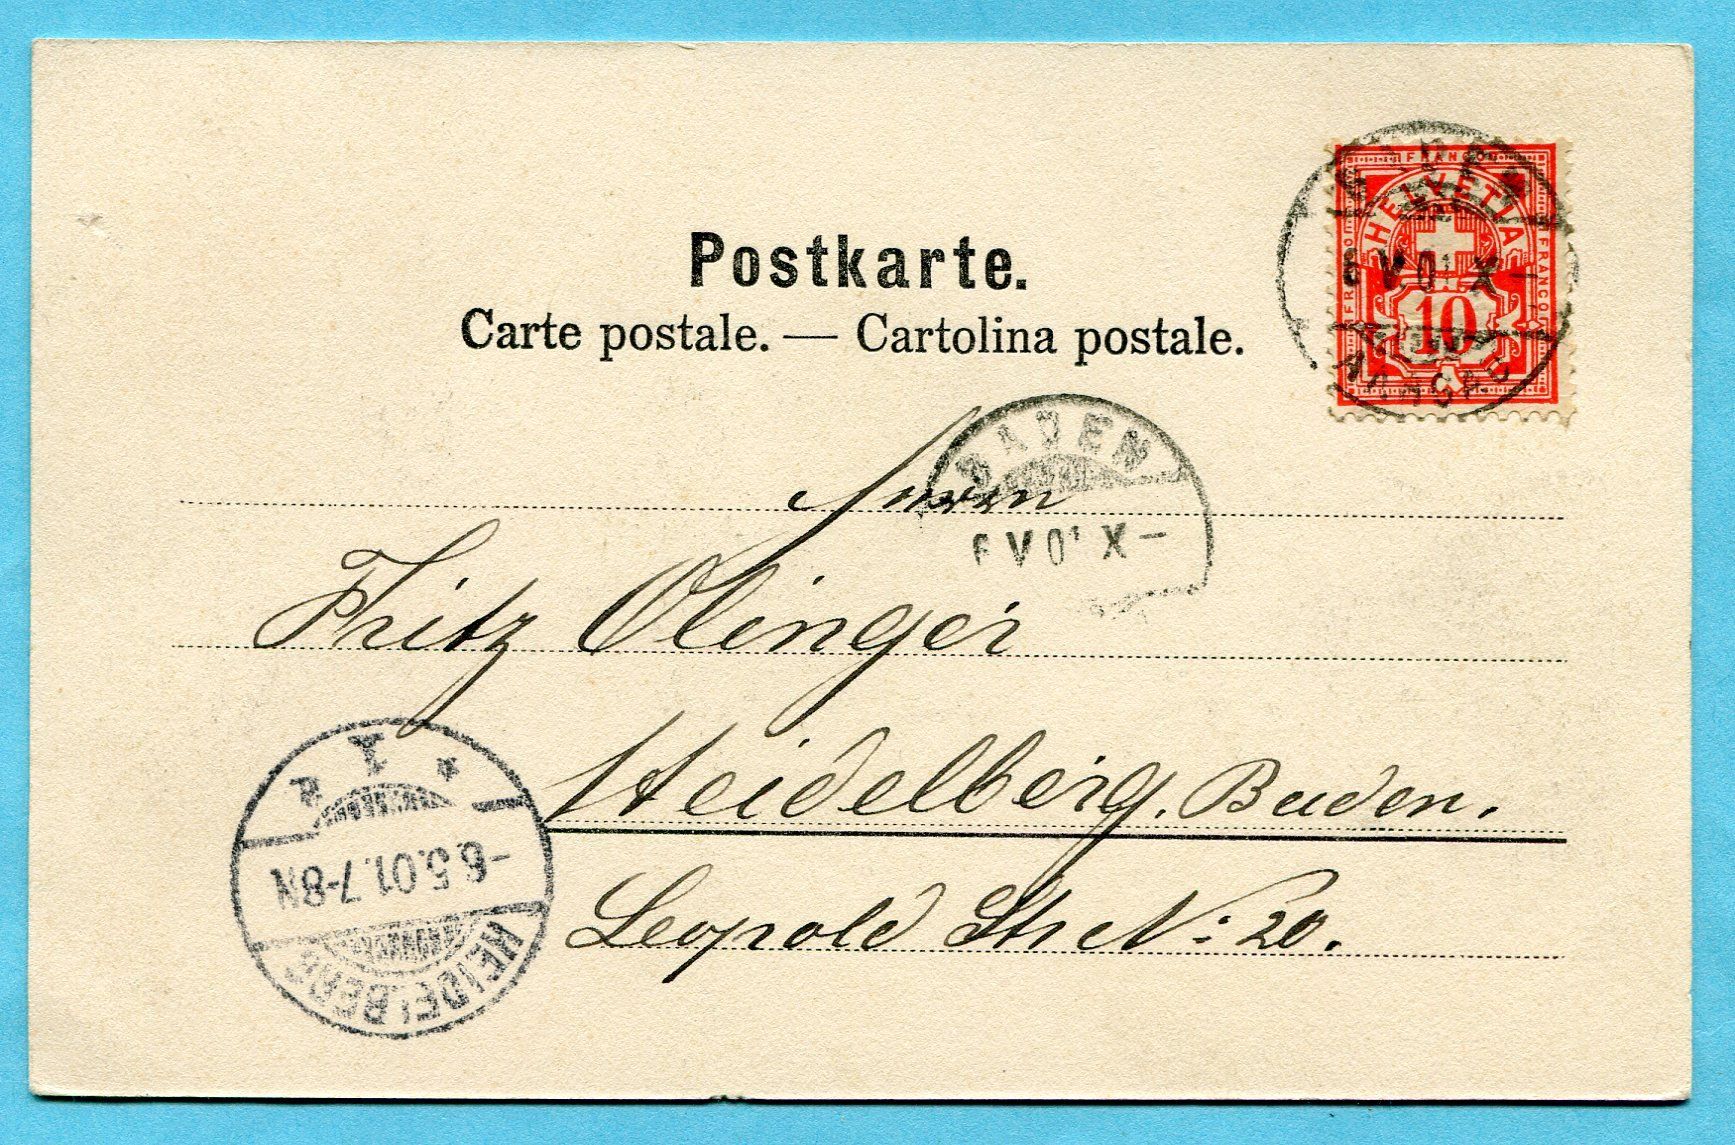 Postkarte.
Carte postale. — Cartolina postale.
FRANCO
FRANCO
FRANCO
HELVETIA
10
6 V 01 X –
AARGAU
BADEN
6 V 01 X –
Herrn
Fritz Olinger
Heidelberg. Baden.
Leopold Str N: 20.
* 1 a
-6.5.01.7-8N
HEIDELBERG